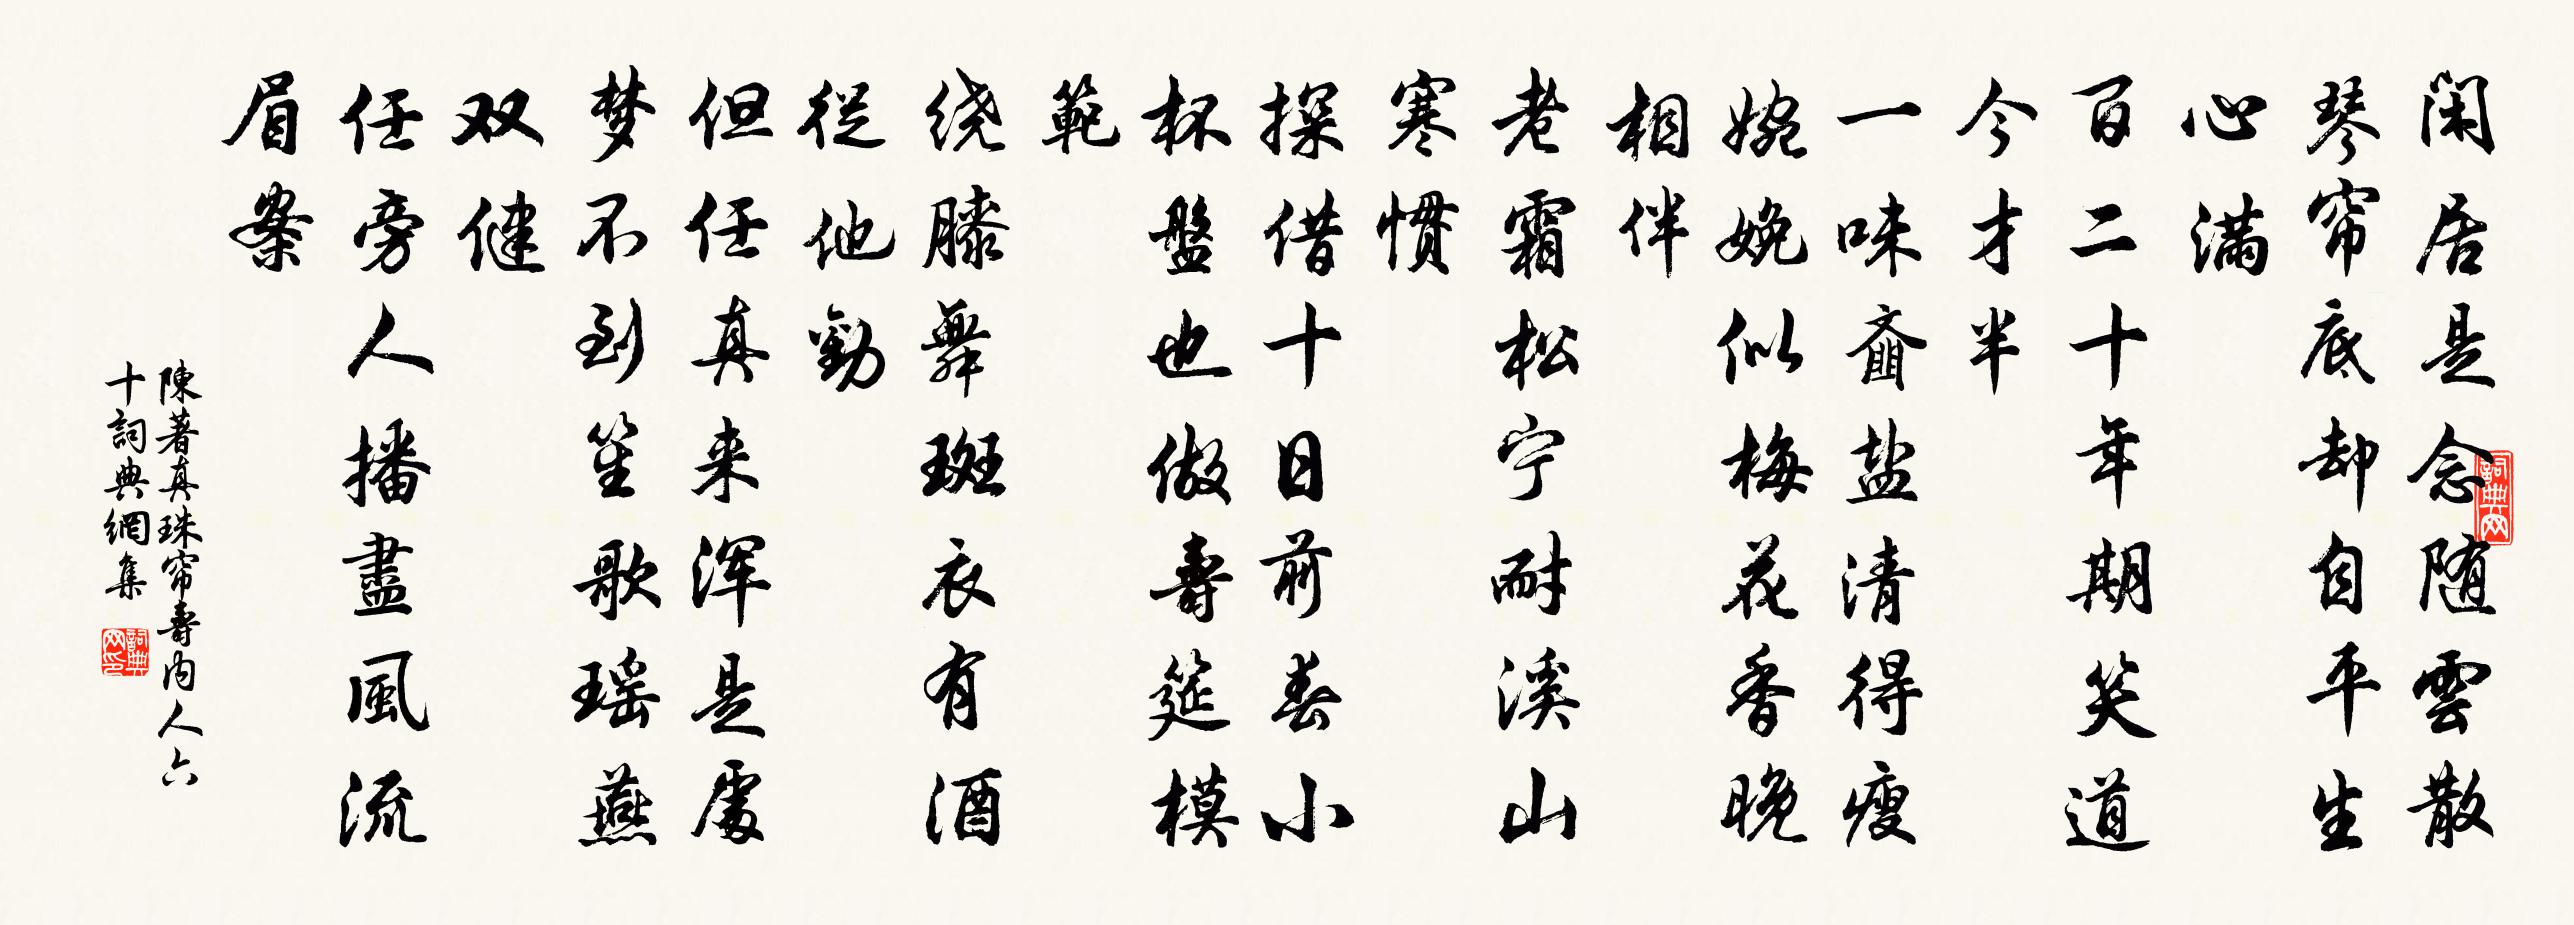 闲居是念随雲散
琴帘底却自平生
心满
百二十年期笑道
今才半
一味齑盐清得瘦
婉娩似梅花香晚
相伴
老霜松宁耐溪山
寒惯
探借十日前春小
杯盤也做壽筵模
範
绕膝舞斑衣有酒
従他勸
但任真来浑是處
梦不到笙歌瑶燕
双健
任旁人播盡風流
眉案
陳著真珠帘壽内人六
十詞典網集
詞典网
詞典网印